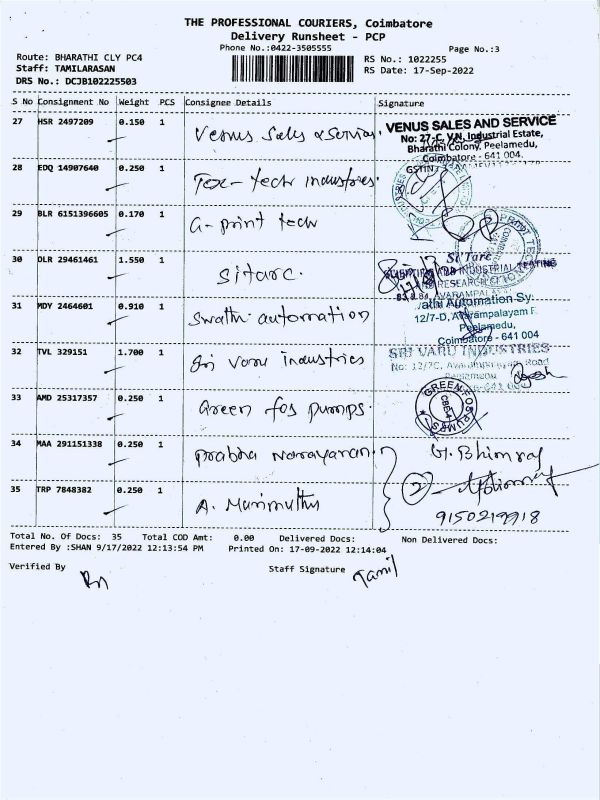 THE PROFESSIONAL COURIERS, Coimbatore
Delivery Runsheet - PCP
Phone No.:0422-3505555
Page No.:3
Route: BHARATHI CLY PC4
RS No.: 1022255
Staff: TAMILARASAN
RS Date: 17-Sep-2022
DRS No.: DCJB102225503
S No Consignment No Weight PCS Consignee Details Signature
27 HSR 2497209 0.150 1 Venus Sales & Service.
VENUS SALES AND SERVICE
No: 27-C, V.N. Industrial Estate,
Bharathi Colony, Peelamedu,
Coimbatore - 641 004.
28 EDQ 14907640 0.250 1 Tex-tech industries.
GSTIN:
29 BLR 6151396605 0.170 1 a-print tech
30 DLR 29461461 1.550 1 Sitarc.
Si'Tarc
INDUSTRIAL TESTING
RESEARCH
83 & 84, AVARAMPAL
31 MDY 2464601 0.910 1 Swathi automation
athi Automation Sy
12/7-D, Avarampalayam
Peelamedu,
Coimbatore - 641 004
32 TVL 329151 1.700 1 Sri varu industries
SRI VARU INDUSTRIES
No: 12/7C, Road
Peelamedu
33 AMD 25317357 0.250 1 Green fos pumps.
GREEN FOS PUMPS
CBE-4
34 MAA 291151338 0.250 1 Prabha Narayanan.
G. Bhimraj
2
35 TRP 7848382 0.250 1 A. Marimuthu
9150219918
Total No. Of Docs: 35 Total COD Amt: 0.00 Delivered Docs: Non Delivered Docs:
Entered By :SHAN 9/17/2022 12:13:54 PM Printed On: 17-09-2022 12:14:04
Verified By
Staff Signature Tamil